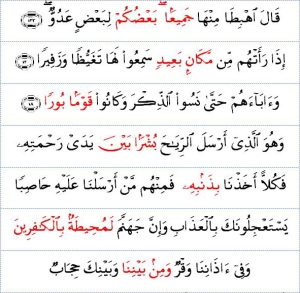 قَالَ ٱهْبِطَا مِنْهَا جَمِيعًاۢ ۖ بَعْضُكُمْ لِبَعْضٍ عَدُوٌّ ۖ
إِذَا رَأَتْهُم مِّن مَّكَانٍۭ بَعِيدٍ سَمِعُوا۟ لَهَا تَغَيُّظًا وَزَفِيرًا
وَءَابَآءَهُمْ حَتَّىٰ نَسُوا۟ ٱلذِّكْرَ وَكَانُوا۟ قَوْمًۢا بُورًا
وَهُوَ ٱلَّذِىٓ أَرْسَلَ ٱلرِّيَـٰحَ بُشْرًۢا بَيْنَ يَدَىْ رَحْمَتِهِۦ
فَكُلًّا أَخَذْنَا بِذَنۢبِهِۦ فَمِنْهُم مَّنْ أَرْسَلْنَا عَلَيْهِ حَاصِبًا
يَسْتَعْجِلُونَكَ بِٱلْعَذَابِ وَإِنَّ جَهَنَّمَ لَمُحِيطَةٌۢ بِٱلْكَـٰفِرِينَ
وَفِىٓ ءَاذَانِنَا وَقْرٌ وَمِنۢ بَيْنِنَا وَبَيْنِكَ حِجَابٌ